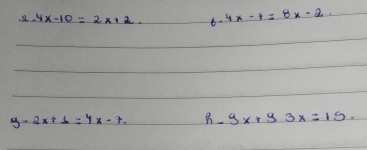 e. 4x-10 = 2x+2.
f. 4x-7 = 8x-2.
g- 2x+1 = 4x-7.
h- 9x+9 3x = 15.